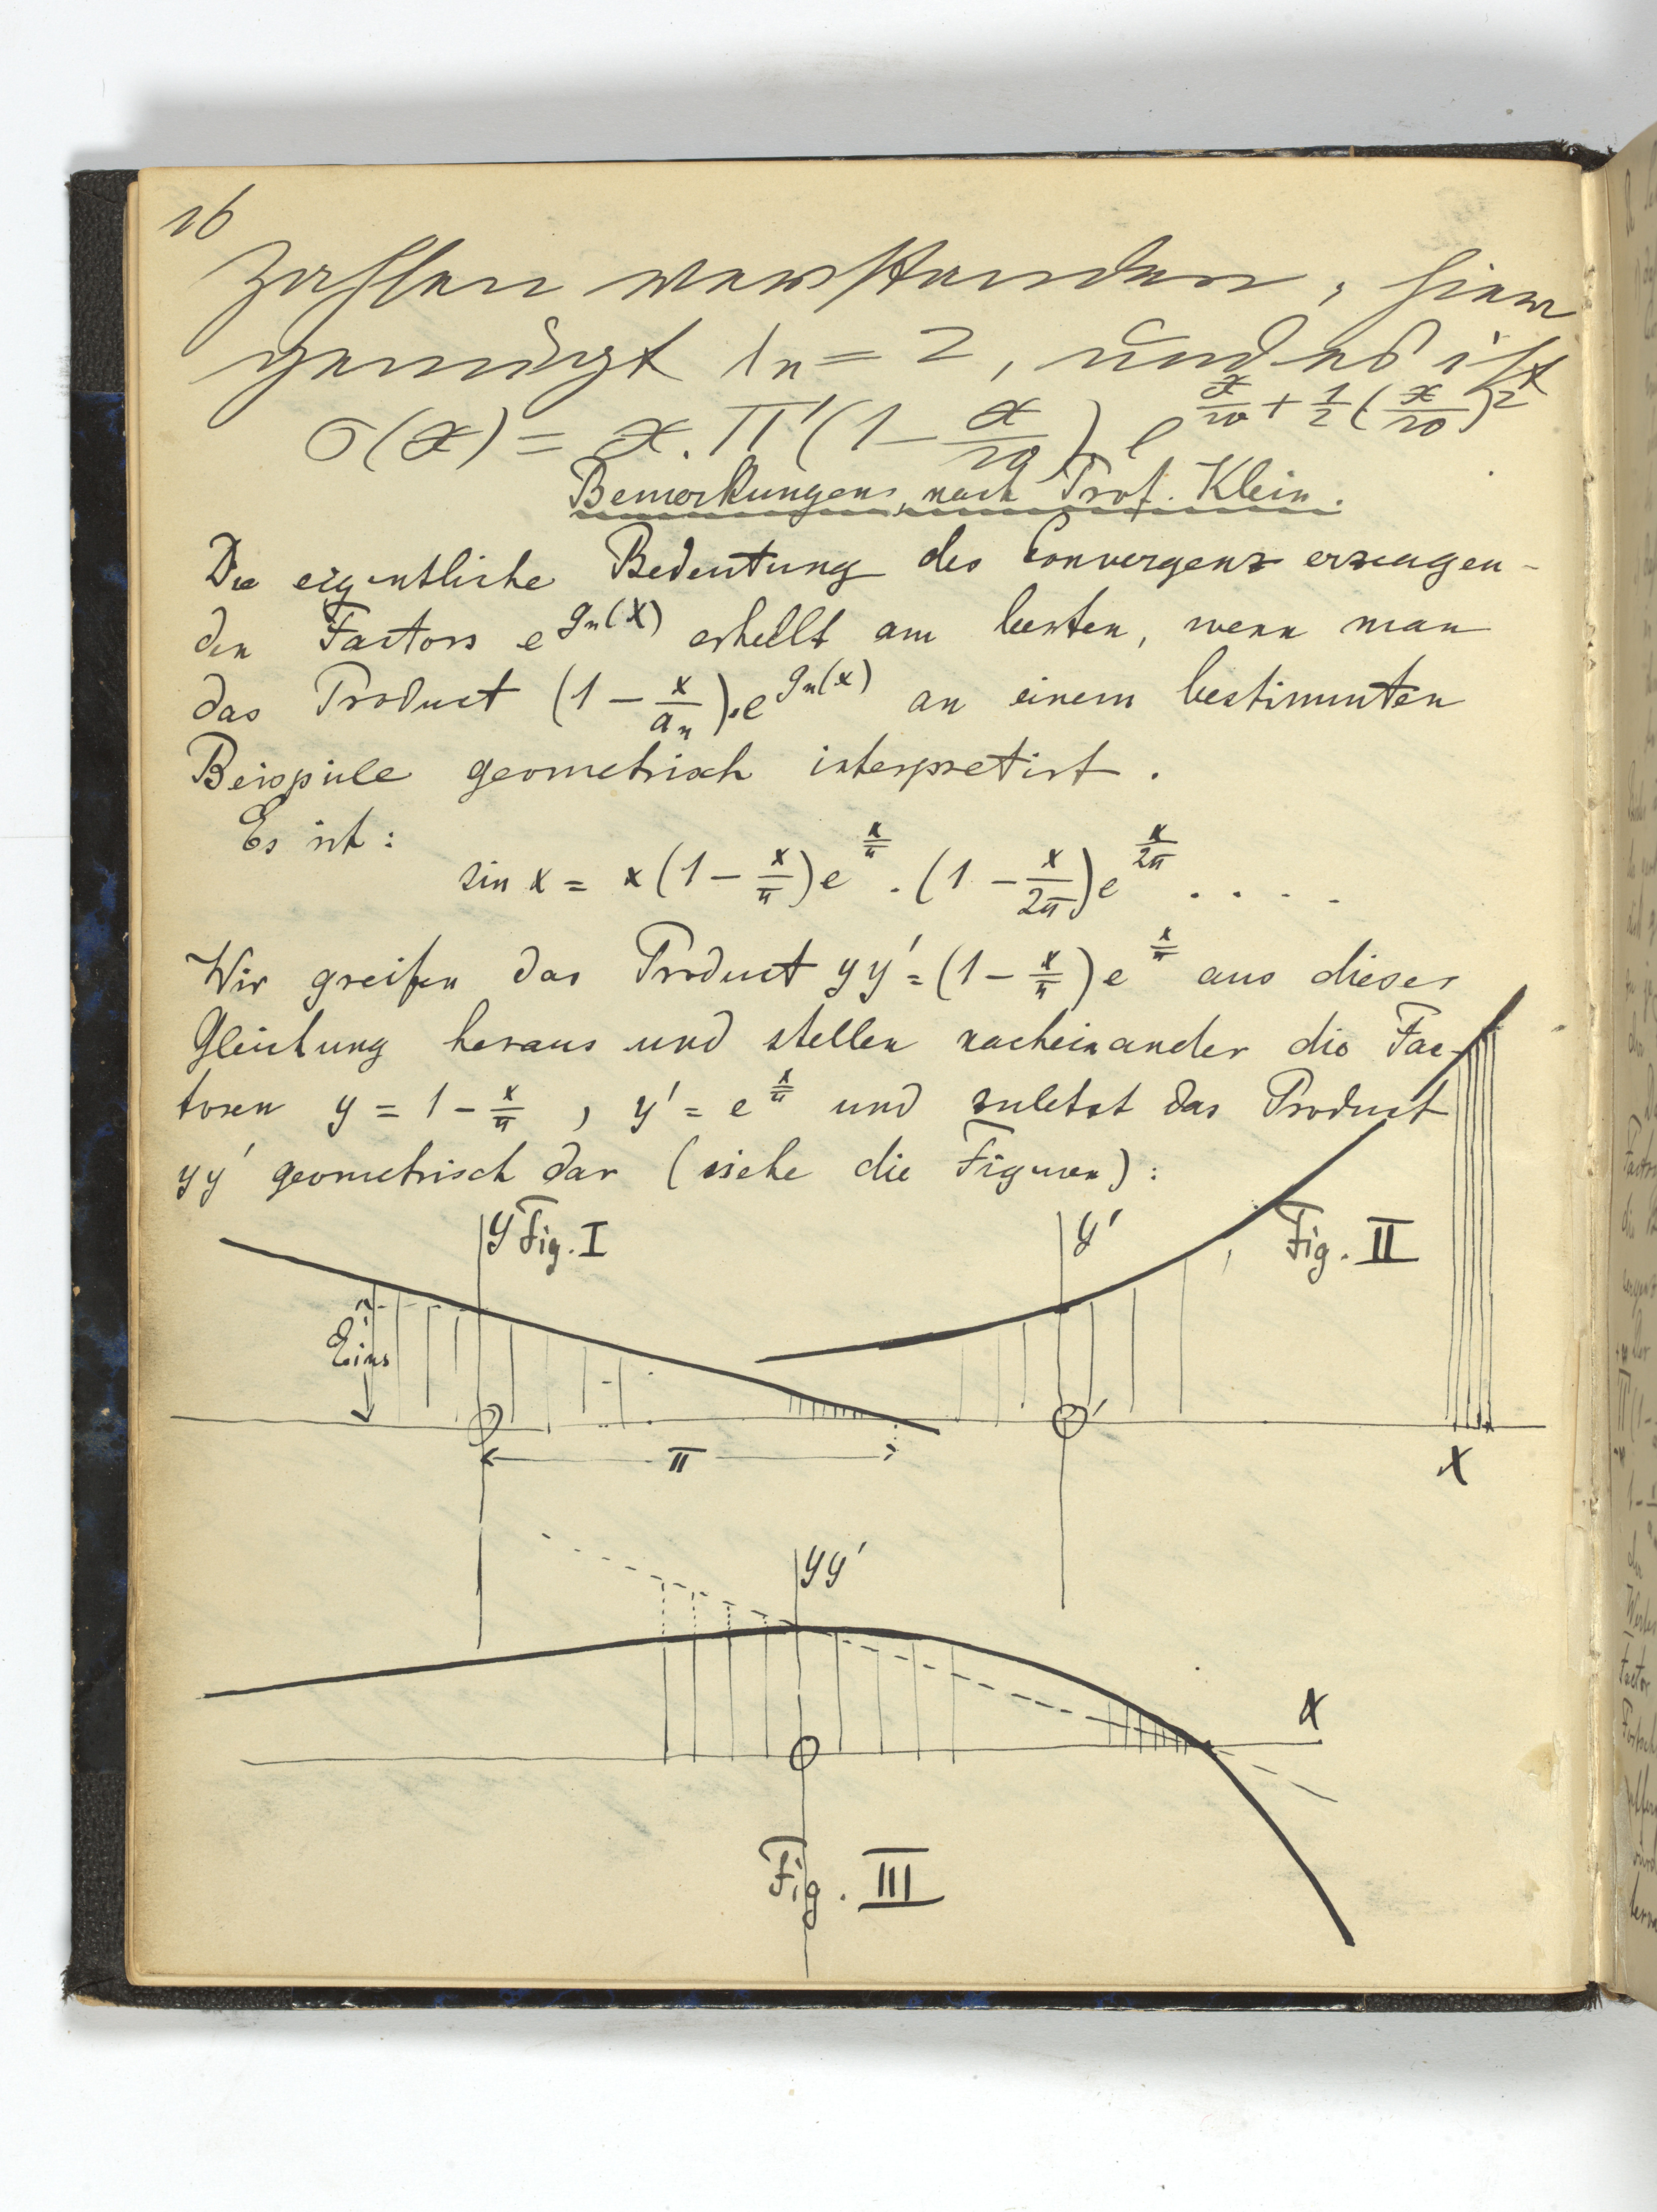 16
Zahlen verstanden, hier
genügt ln = 2, und es ist
σ(x) = x. Π'(1 - x/w) e^{x/w + 1/2 (x/w)^2}
Bemerkungen, nach Prof. Klein.
Die eigentliche Bedeutung des Convergenz erzeugen-
den Factors e^{gn(x)} erhellt am besten, wenn man
das Product (1 - x/an).e^{gn(x)} an einem bestimmten
Beispiele geometrisch interpretirt.
Es ist:
sin x = x(1 - x/π)e^{x/π} . (1 - x/2π)e^{x/2π} . . . .
Wir greifen das Product yy' = (1 - x/π)e^{x/π} aus dieser
Gleichung heraus und stellen nacheinander die Fac-
toren y = 1 - x/π, y' = e^{x/π} und zuletzt das Product
yy' geometrisch dar (siehe die Figuren):
y Fig. I
y'
Fig. II
Eins
O
O'
π
X
yy'
X
O
Fig. III